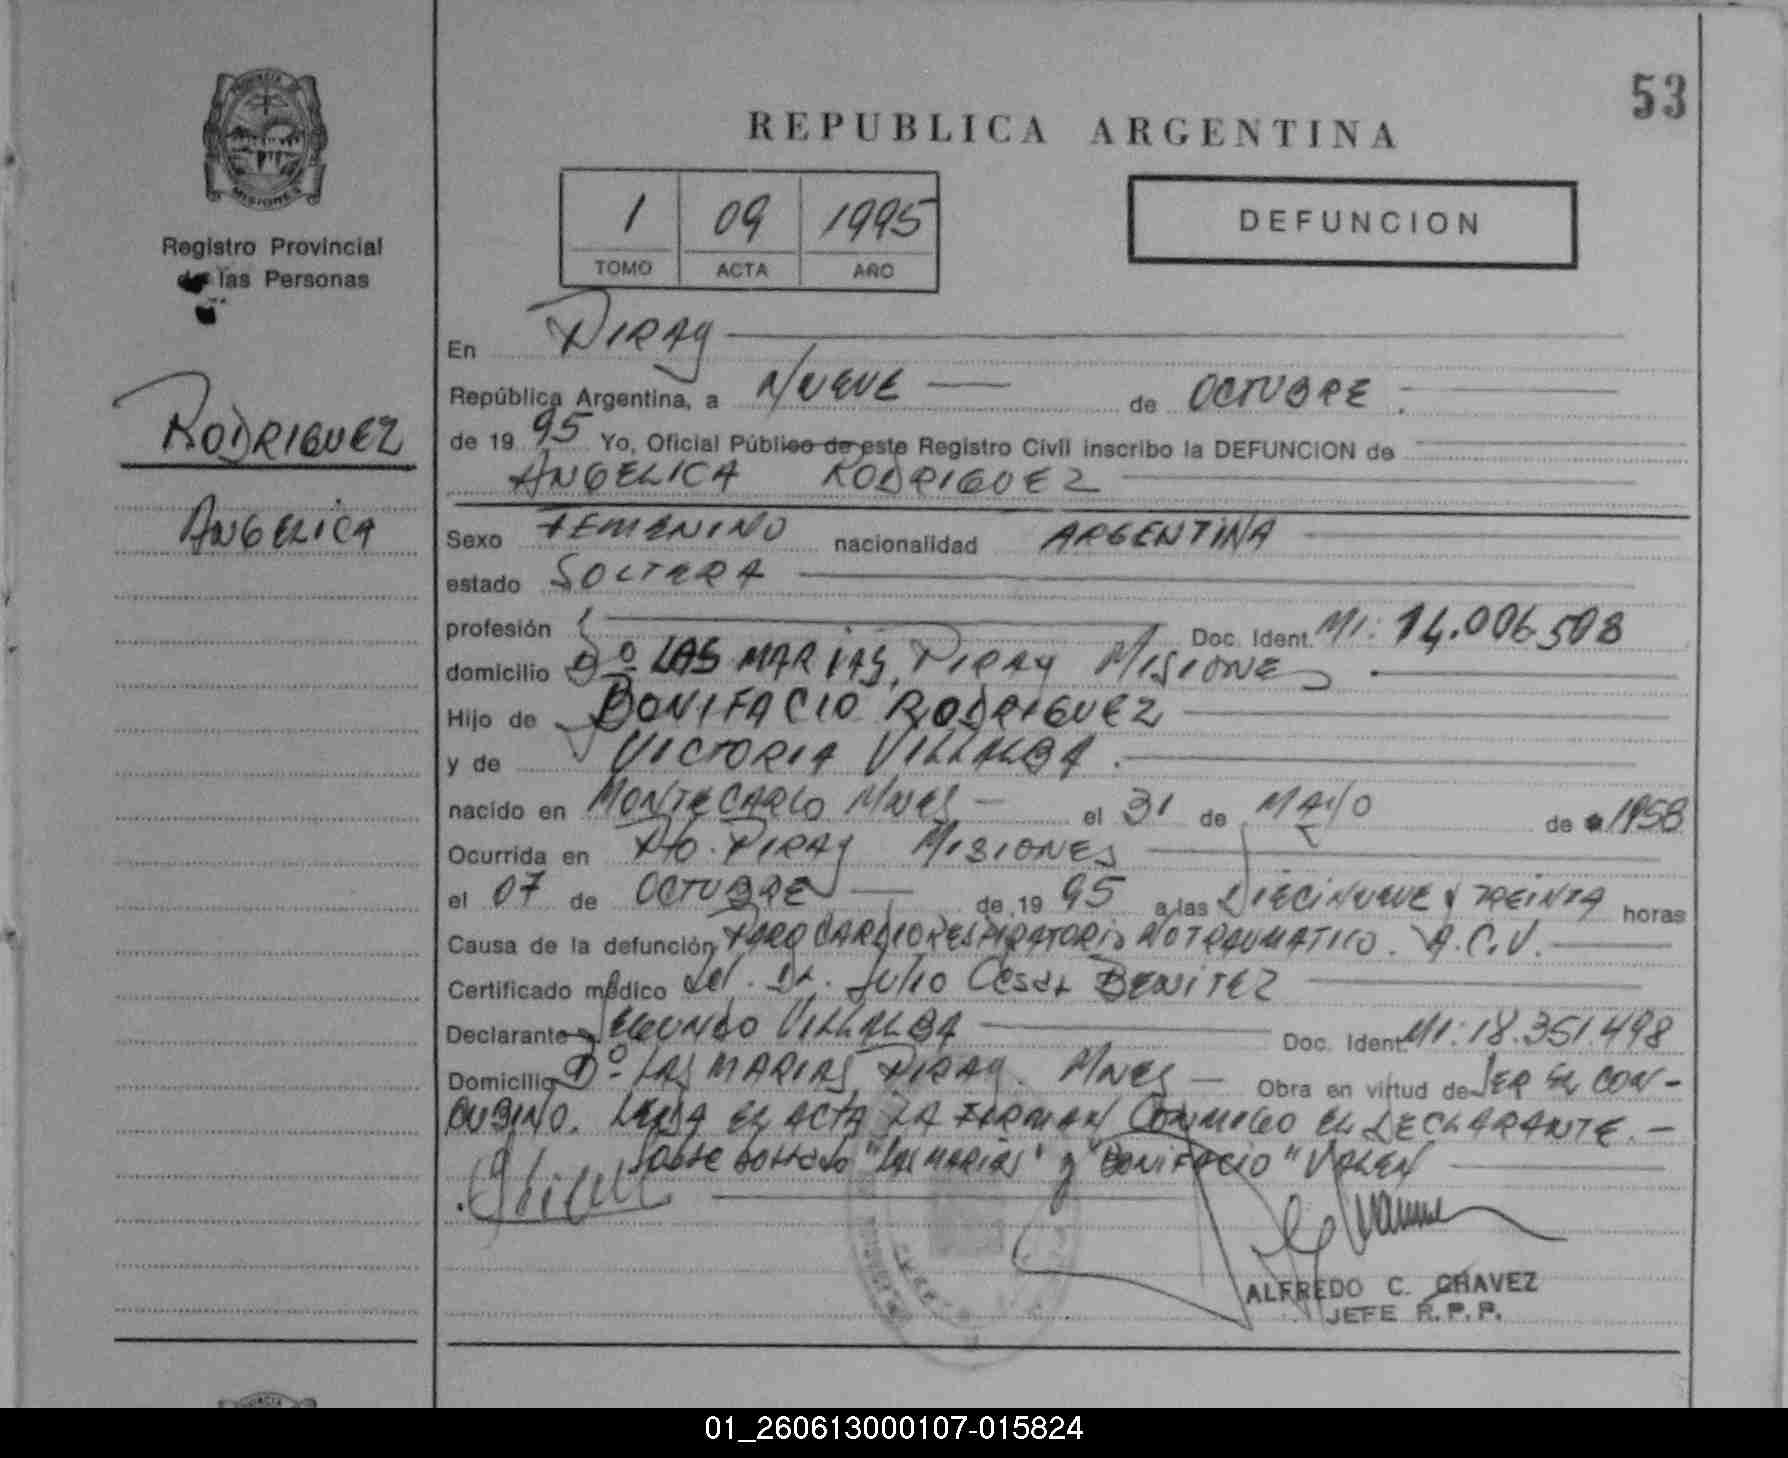 53
REPUBLICA ARGENTINA
PROVINCIA
MISIONES
Registro Provincial
de las Personas
1 09 1995
TOMO ACTA AÑO
DEFUNCION
RODRIGUEZ
ANGELICA
En PIRAY
República Argentina, a NUEVE de OCTUBRE.
de 19 95 Yo, Oficial Público de este Registro Civil inscribo la DEFUNCION de
ANGELICA RODRIGUEZ
Sexo FEMENINO nacionalidad ARGENTINA
estado SOLTERA
profesión Doc. Ident. MI: 14.006.508
domicilio Dº LAS MARIAS, PIRAY MISIONES
Hijo de BONIFACIO RODRIGUEZ
y de VICTORIA VILLALBA.
nacido en MONTECARLO MNES - el 31 de MAYO de 1958
Ocurrida en PTO. PIRAY MISIONES
el 07 de OCTUBRE de 19 95 a las DIECINUEVE Y TREINTA horas
Causa de la defunción PARO CARDIORESPIRATORIO NO TRAUMATICO. A.C.V.
Certificado médico del. Dr. Julio Cesar BENITEZ
Declarante SEGUNDO VILLALBA Doc. Ident. MI: 18.351.498
Domicilio Dº LAS MARIAS PIRAY. MNES - Obra en virtud de SER EL CON-
CUBINO. LEIDA EL ACTA LA FIRMAN CONMIGO EL DECLARANTE. -
SOBRE BORRADO "LAS MARIAS" y "BONIFACIO" VALEN
ALFREDO C. CHAVEZ
JEFE R.P.P.
01_260613000107-015824